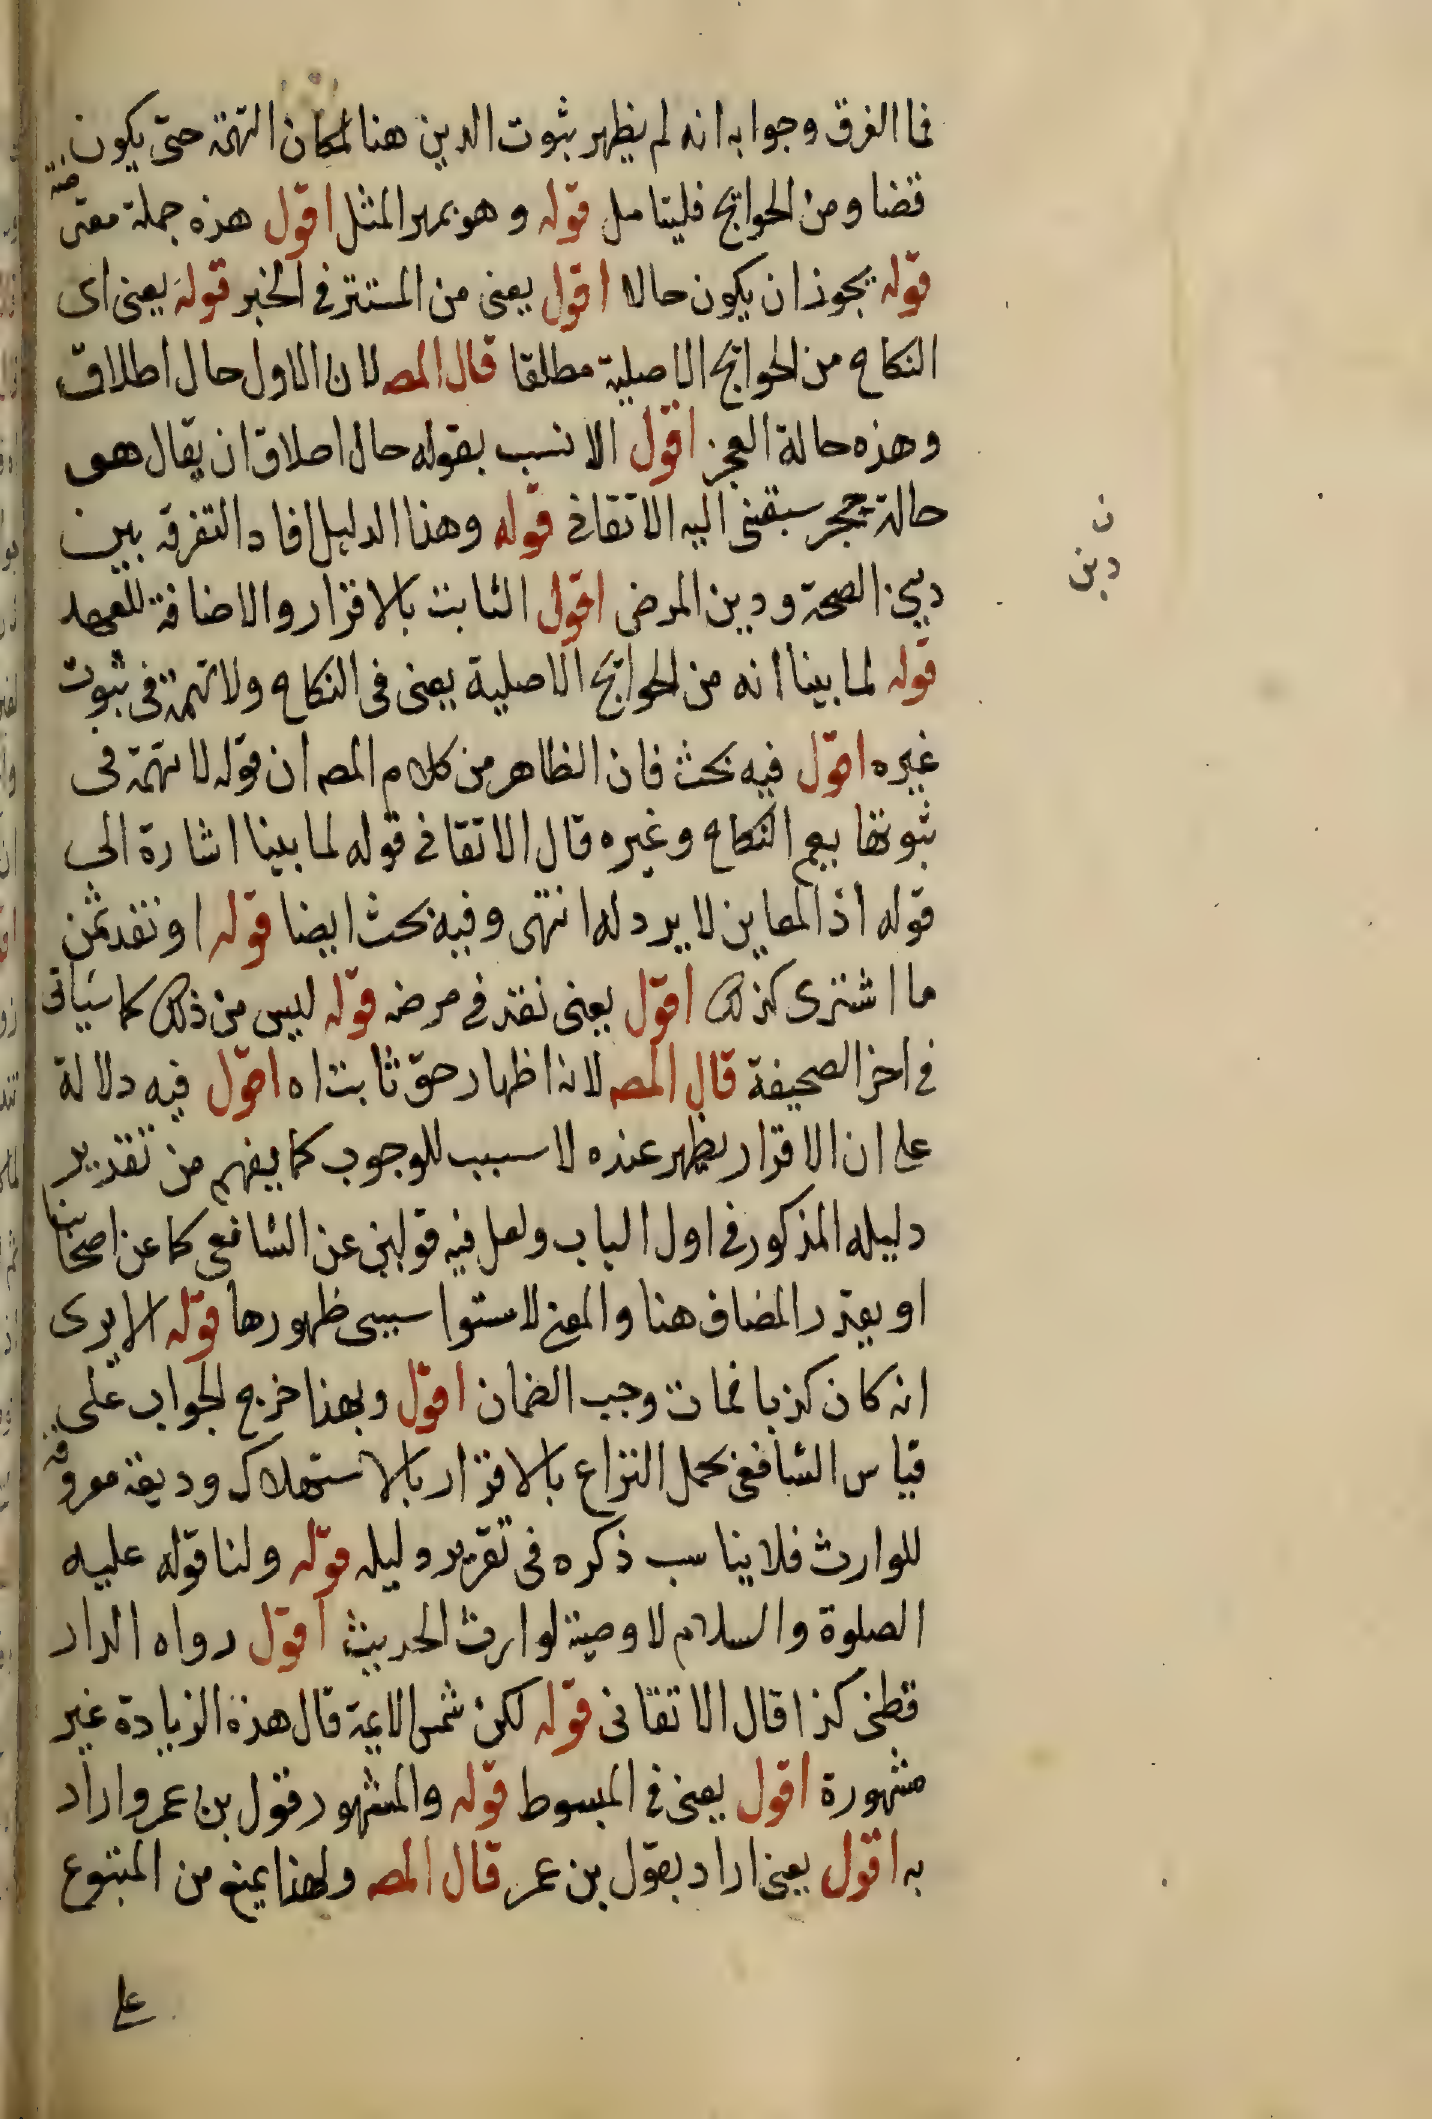 فما الفرق وجوابه انه لم يظهر ثبوت الدين هنا لمكان التهمة حتى يكون
قضاوه من الحوايج فليتامل قوله وهو بمهر المثل اقول هذه جملة معترضة
قوله يجوز ان يكون حالا اقول يعنى من المستتر فى الخبر قوله يعنى اى
النكاح من الحوايج الاصلية مطلقا قال المص لان الاول حال اطلاق
وهذه حالة العجز اقول الانسب بقوله حال اطلاق ان يقال هى
حالة حجر سبقنى اليه الاتقانى قوله وهذا الدليل افاد التفرقه بين
دين الصحة ودين المرض اقول الثابت بالاقرار والاضافة للعهد
ن
دين
قوله لما بينا انه من الحوايج الاصلية يعنى فى النكاح ولا تهمة فى ثبوت
غيره اقول فيه بحث فان الظاهر من كلام المص ان قوله لا تهمة فى
ثبوتها يعم النكاح وغيره قال الاتقانى قوله لما بينا اشارة الى
قوله اذ المعاين لا يرد له انتهى وفيه بحث ايضا قوله او نقد ثمن
ما اشترى كذلك اقول يعنى نقد فى مرضه قوله ليس من ذلك كما سياتى
فى اخر الصحيفة قال المص لانه اظهار حق ثابت اه اقول فيه دلالة
على ان الاقرار يظهر عنده لا سبب للوجوب كما يفهم من تقدير
دليله المذكور فى اول الباب ولعل فيه قولين عن الشافعى كما عن اصحابنا
او يقدر المضاف هنا والمعنى لاستوا سببى ظهورها قوله الا يرى
انه كان كذبا فمات وجب الضمان اقول وبهذا خرج الجواب على
قياس الشافعى محل النزاع بالاقرار بالاستهلاك وديعة معروفة
للوارث فلا يناسب ذكره فى تقرير دليله قوله ولنا قوله عليه
الصلوة والسلام لا وصية لوارث الحديث اقول رواه الدار
قطنى كذا قال الاتقانى قوله لكن شمس الايمة قال هذه الزيادة غير
مشهورة اقول يعنى فى المبسوط قوله والمشهور قول بن عمر واراد
به اقول يعنى اراد بقول بن عمر قال المص ولهذا يمنع من التبرع
على